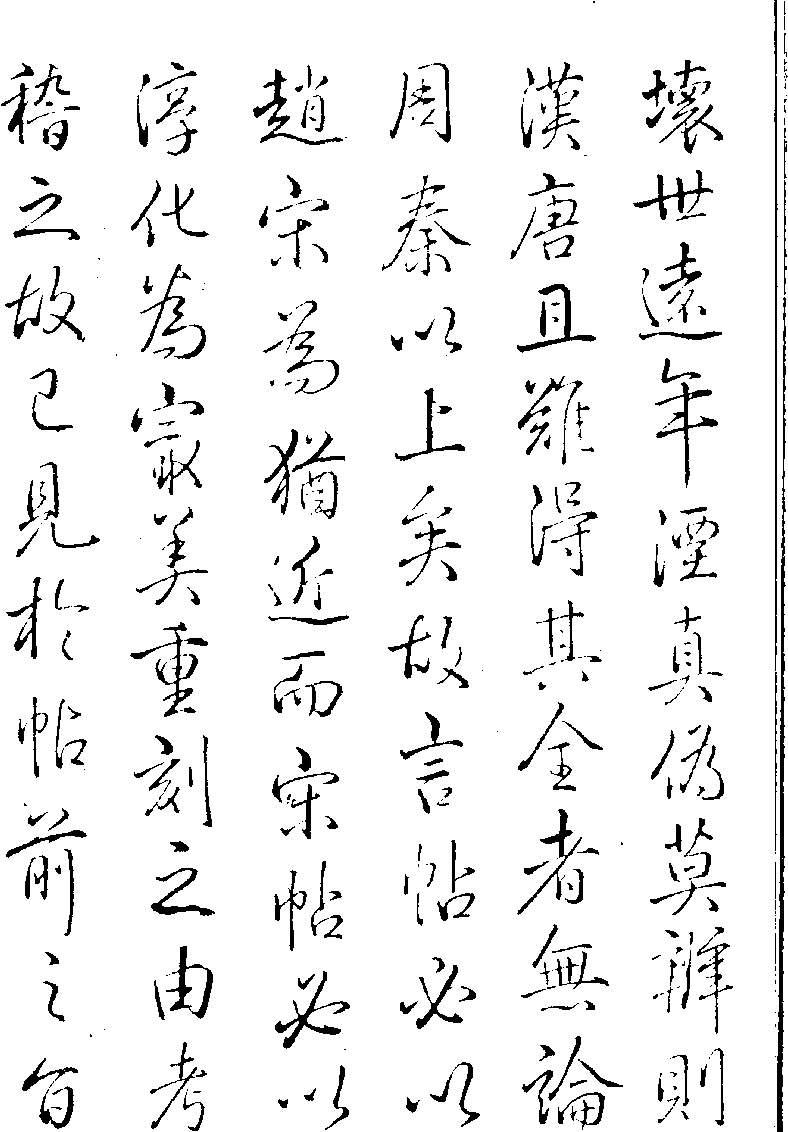 壞世遠年湮真偽莫辨則
漢唐且難得其全者無論
周秦以上矣故言帖必以
趙宋為猶近而宋帖必以
淳化為最美重刻之由考
稽之故已見於帖前之旨